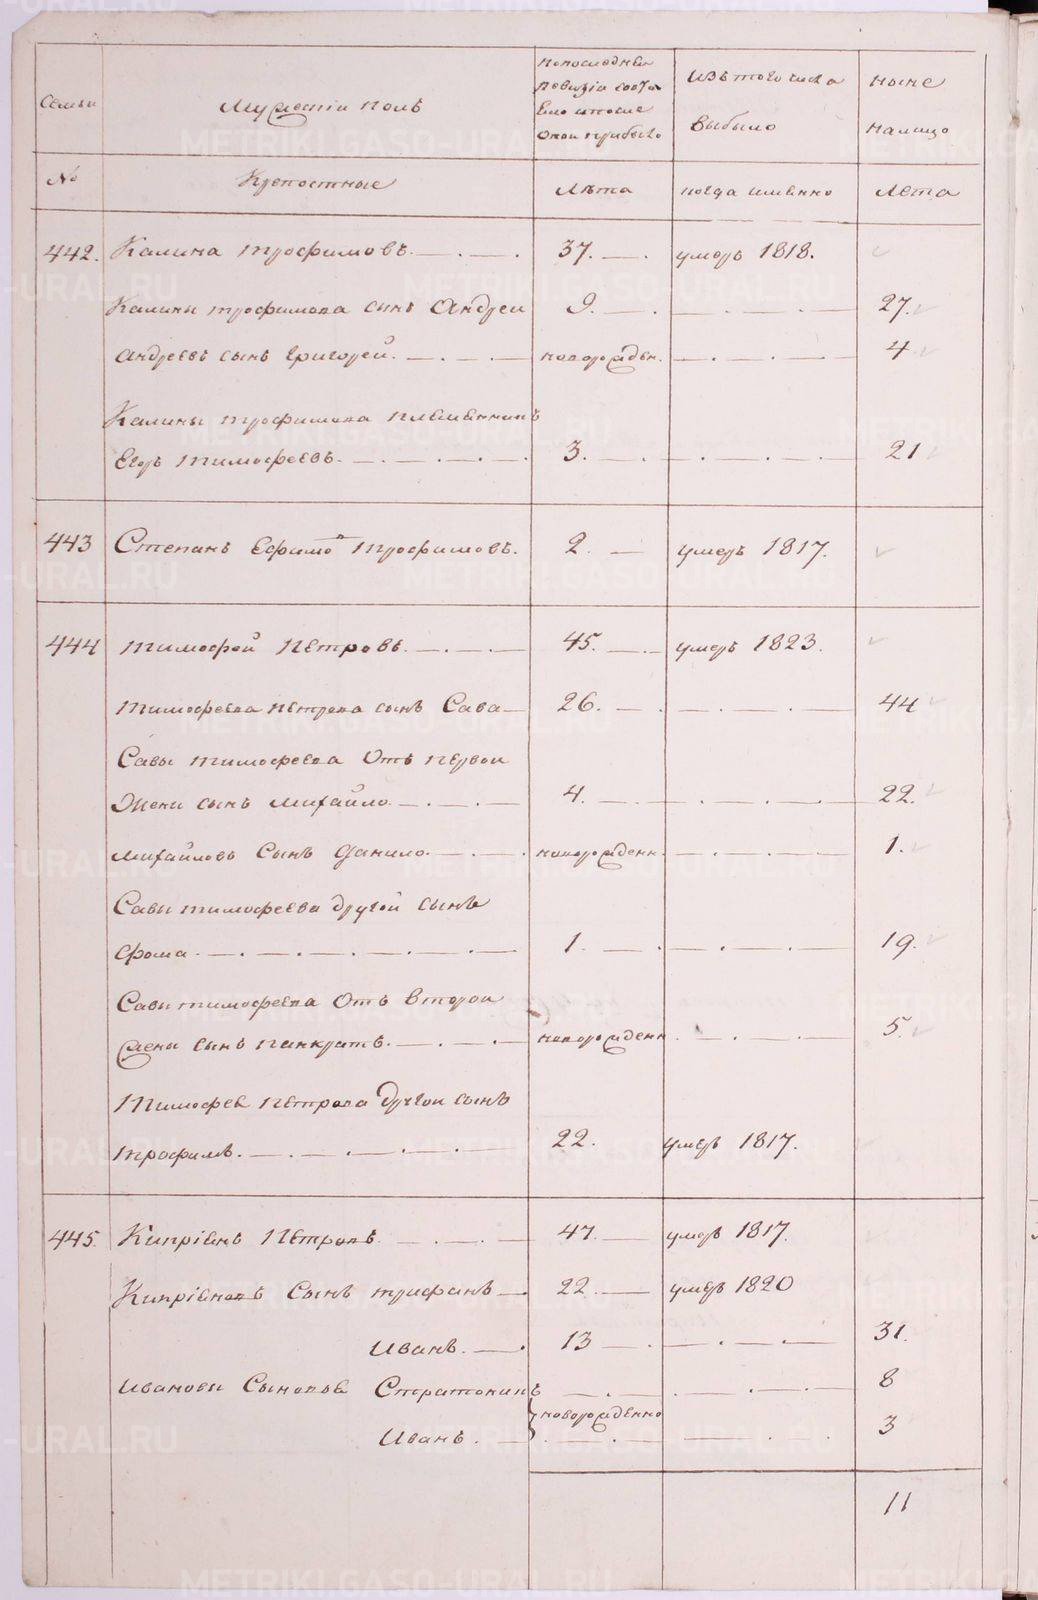 Семьи
Мужескій полъ
по последней
ревизіи состо
яло и после
оной прибыло
изъ того числа
выбыло
ныне
налицо
№
Крепостные
Лѣта
когда именно
Лета
442. Калина трофимовъ. 37. умеръ 1818.
Калины трофимова сынъ Андреи 9. 27.
Андреевъ сынъ Григорей. новорожден. 4
Калины трофимова племянникъ
Егоръ тимофеевъ. 3. 21
443 Степанъ Ефимо в трофимовъ. 2. умеръ 1817.
444 тимофей Петровъ. 45. умеръ 1823.
тимофеева петрова сынъ Сава 26. 44
Савы тимофеева Отъ первои
Жены сынъ михайло. 4. 22.
михайловъ Сынъ данило. новорожденн. 1.
Савы тимофеева другой сынъ
фома. 1. 19.
Савы тимофеева Отъ второи
жены сынъ панкратъ. новорожденн. 5.
Тимофея петрова другои сынъ
трофимъ. 22. умеръ 1817.
445. Кипріянъ Петровъ. 47. умеръ 1817.
Кипріяновъ Сынъ трифанъ 22. умеръ 1820
Иванъ. 13 31.
Ивановы Сыновья Стратоникъ 8
новорожденно
Иванъ. 3
11
METRIKI.GASO-URAL.RU